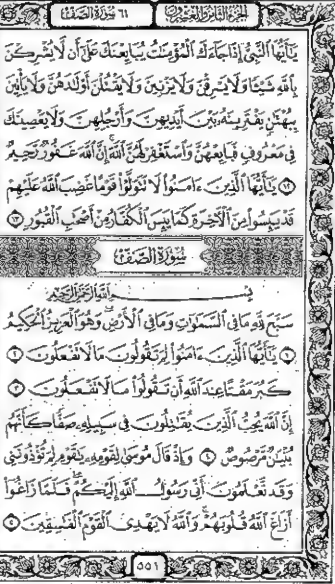 الجزء الثامن والعشرون ٦١ سورة الصف
يَٰٓأَيُّهَا ٱلنَّبِيُّ إِذَا جَآءَكَ ٱلْمُؤْمِنَٰتُ يُبَايِعْنَكَ عَلَىٰٓ أَن لَّا يُشْرِكْنَ
بِٱللَّهِ شَيْـًٔا وَلَا يَسْرِقْنَ وَلَا يَزْنِينَ وَلَا يَقْتُلْنَ أَوْلَٰدَهُنَّ وَلَا يَأْتِينَ
بِبُهْتَٰنٍ يَفْتَرِينَهُۥ بَيْنَ أَيْدِيهِنَّ وَأَرْجُلِهِنَّ وَلَا يَعْصِينَكَ
فِى مَعْرُوفٍ فَبَايِعْهُنَّ وَٱسْتَغْفِرْ لَهُنَّ ٱللَّهَ إِنَّ ٱللَّهَ غَفُورٌ رَّحِيمٌ
١٢ يَٰٓأَيُّهَا ٱلَّذِينَ ءَامَنُوا۟ لَا تَتَوَلَّوْا۟ قَوْمًا غَضِبَ ٱللَّهُ عَلَيْهِمْ
قَدْ يَئِسُوا۟ مِنَ ٱلْءَاخِرَةِ كَمَا يَئِسَ ٱلْكُفَّارُ مِنْ أَصْحَٰبِ ٱلْقُبُورِ ١٣
سورة الصف
بِسْمِ ٱللَّهِ ٱلرَّحْمَٰنِ ٱلرَّحِيمِ
سَبَّحَ لِلَّهِ مَا فِى ٱلسَّمَٰوَٰتِ وَمَا فِى ٱلْأَرْضِ وَهُوَ ٱلْعَزِيزُ ٱلْحَكِيمُ
١ يَٰٓأَيُّهَا ٱلَّذِينَ ءَامَنُوا۟ لِمَ تَقُولُونَ مَا لَا تَفْعَلُونَ ٢
كَبُرَ مَقْتًا عِندَ ٱللَّهِ أَن تَقُولُوا۟ مَا لَا تَفْعَلُونَ ٣
إِنَّ ٱللَّهَ يُحِبُّ ٱلَّذِينَ يُقَٰتِلُونَ فِى سَبِيلِهِۦ صَفًّا كَأَنَّهُم
بُنْيَٰنٌ مَّرْصُوصٌ ٤ وَإِذْ قَالَ مُوسَىٰ لِقَوْمِهِۦ يَٰقَوْمِ لِمَ تُؤْذُونَنِى
وَقَد تَّعْلَمُونَ أَنِّى رَسُولُ ٱللَّهِ إِلَيْكُمْ فَلَمَّا زَاغُوٓا۟
أَزَاغَ ٱللَّهُ قُلُوبَهُمْ وَٱللَّهُ لَا يَهْدِى ٱلْقَوْمَ ٱلْفَٰسِقِينَ ٥
٥٥١